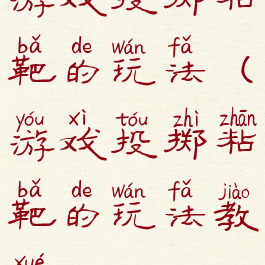 游戏投掷粘
bǎ de wán fǎ
靶的玩法（
yóu xì tóu zhì zhān
游戏投掷粘
bǎ de wán fǎ jiào
靶的玩法教
xué